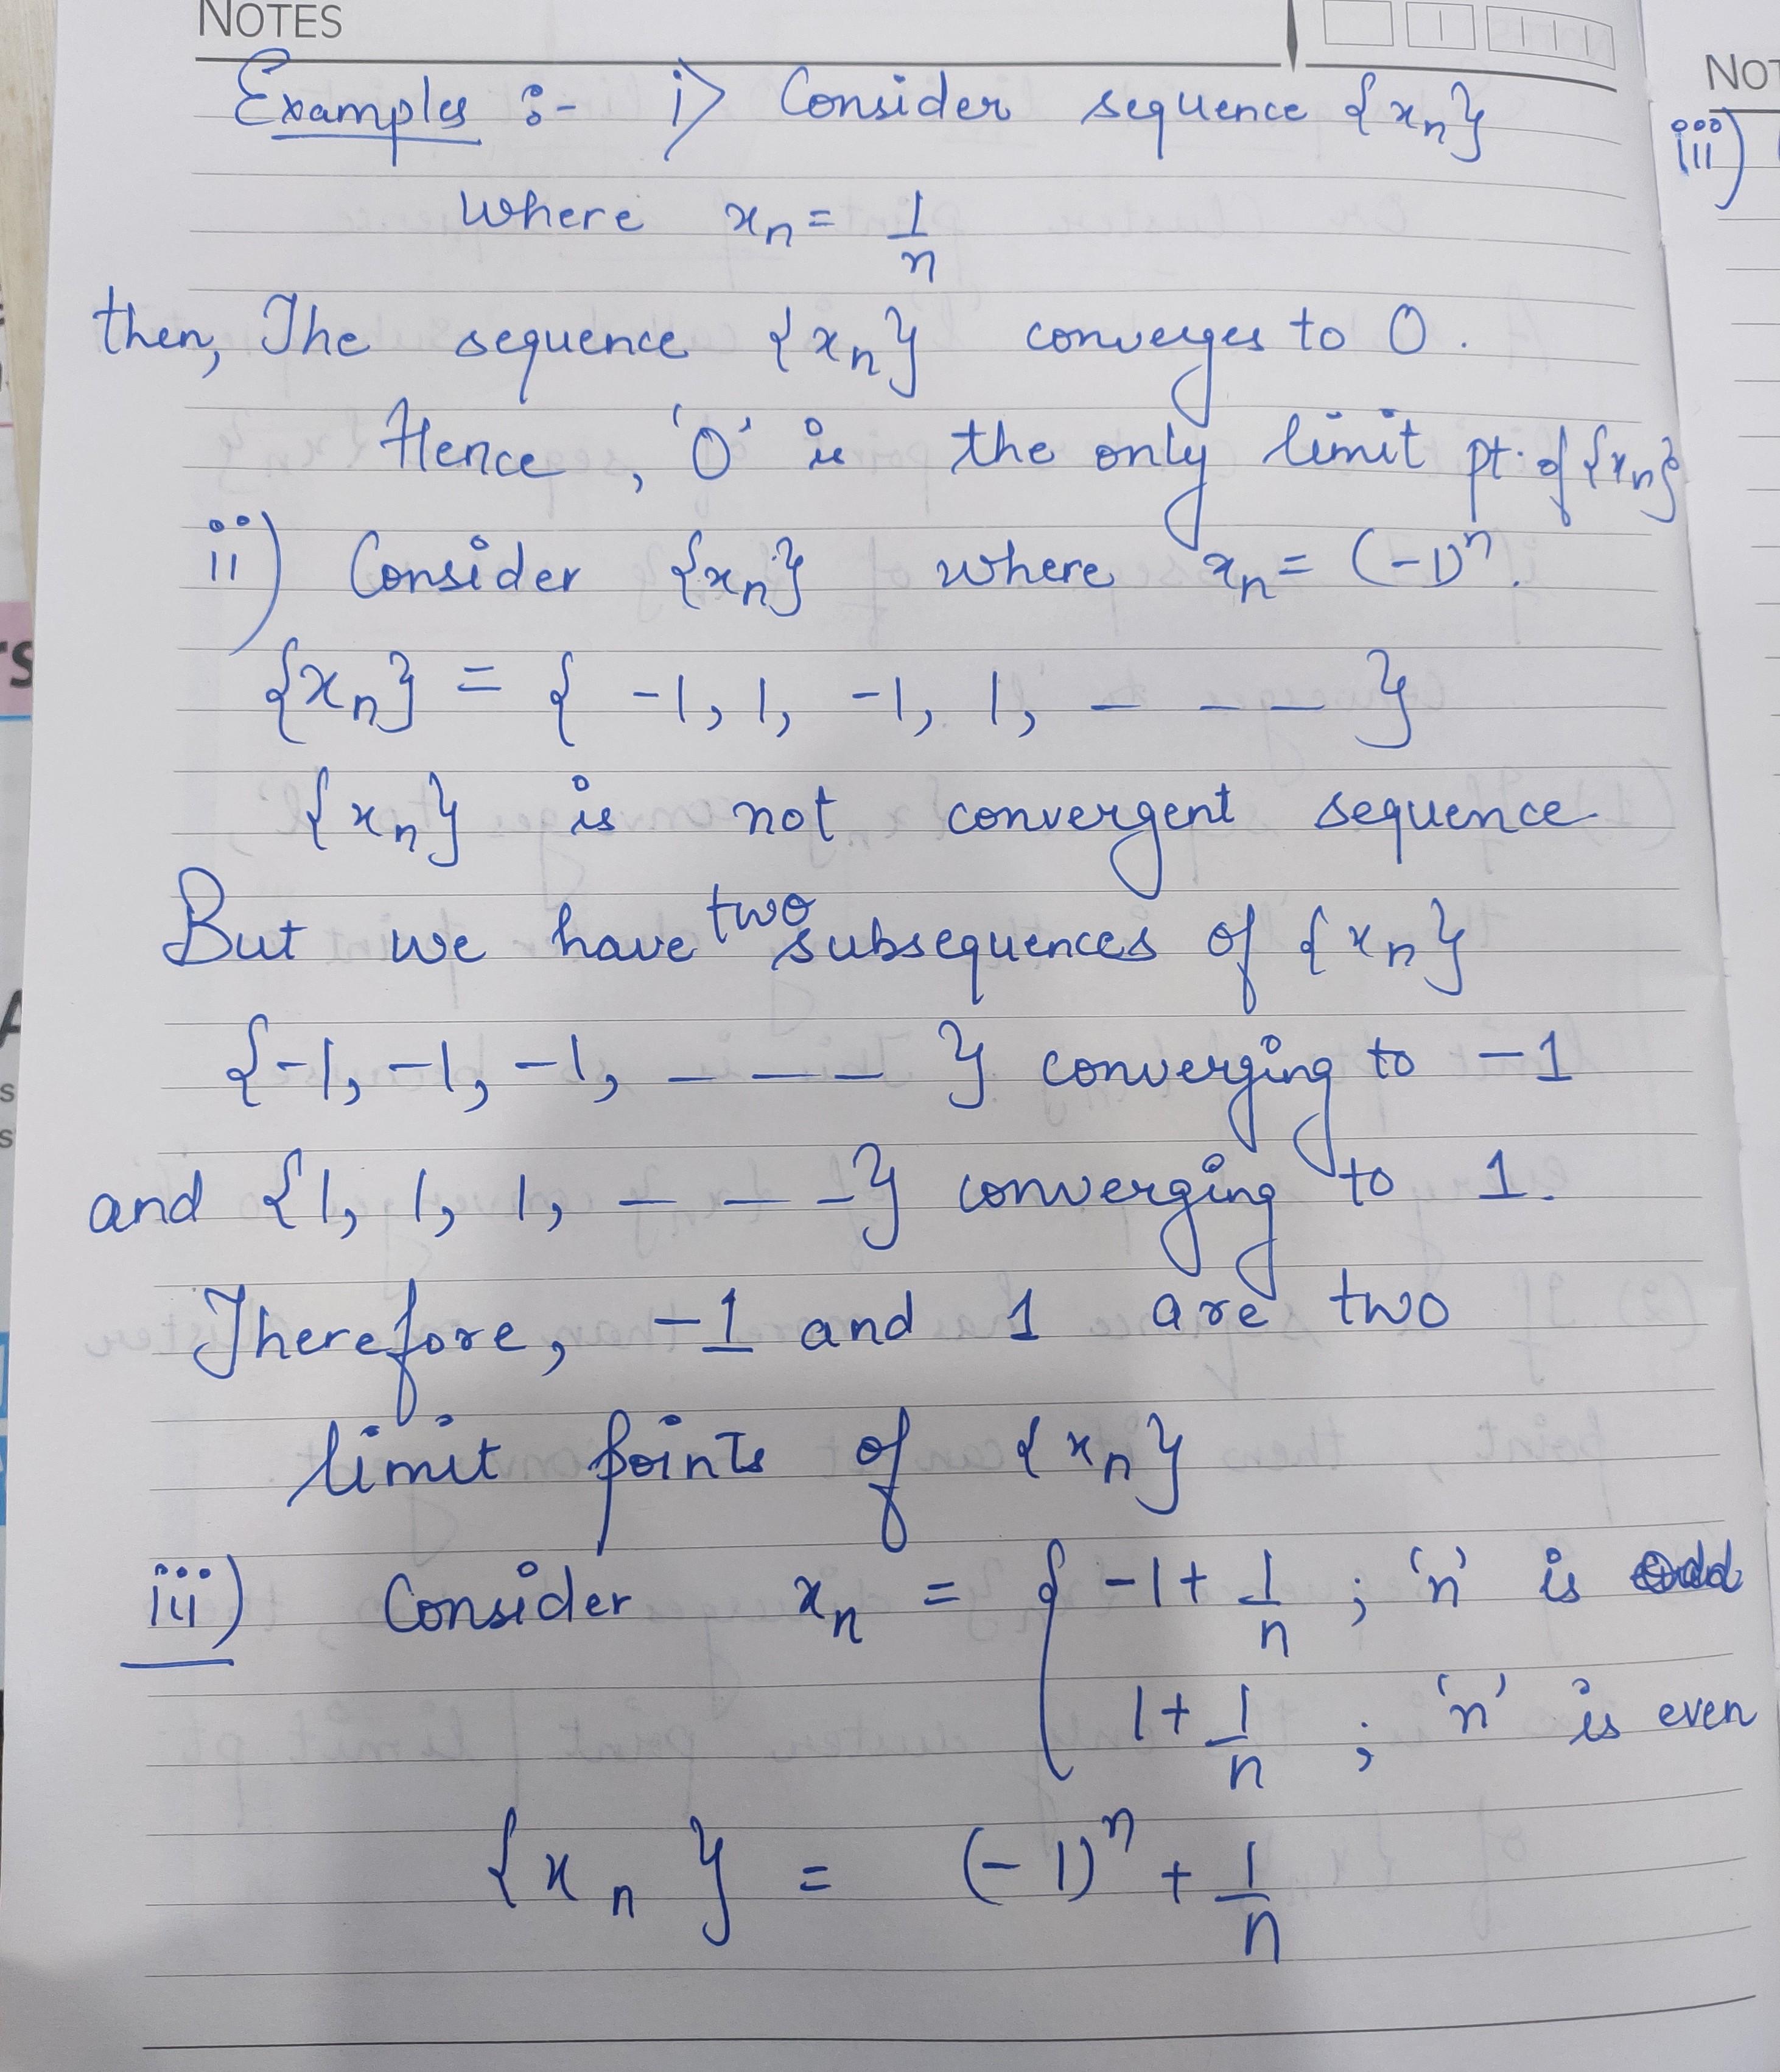 NOTES
Examples :- i) Consider sequence {xn}
where xn = 1/n
then, The sequence {xn} converges to 0.
Hence, '0' is the only limit pt. of {xn}
ii) Consider {xn} where xn = (-1)^n.
{xn} = { -1, 1, -1, 1, - - - }
{xn} is not convergent sequence.
But we have two subsequences of {xn}
{-1, -1, -1, - - - } converging to -1
and {1, 1, 1, - - - } converging to 1.
Therefore, -1 and 1 are two
limit points of {xn}
iii) Consider xn = { -1 + 1/n ; 'n' is odd
1 + 1/n ; 'n' is even
{xn} = (-1)^n + 1/n
NOT
iii)